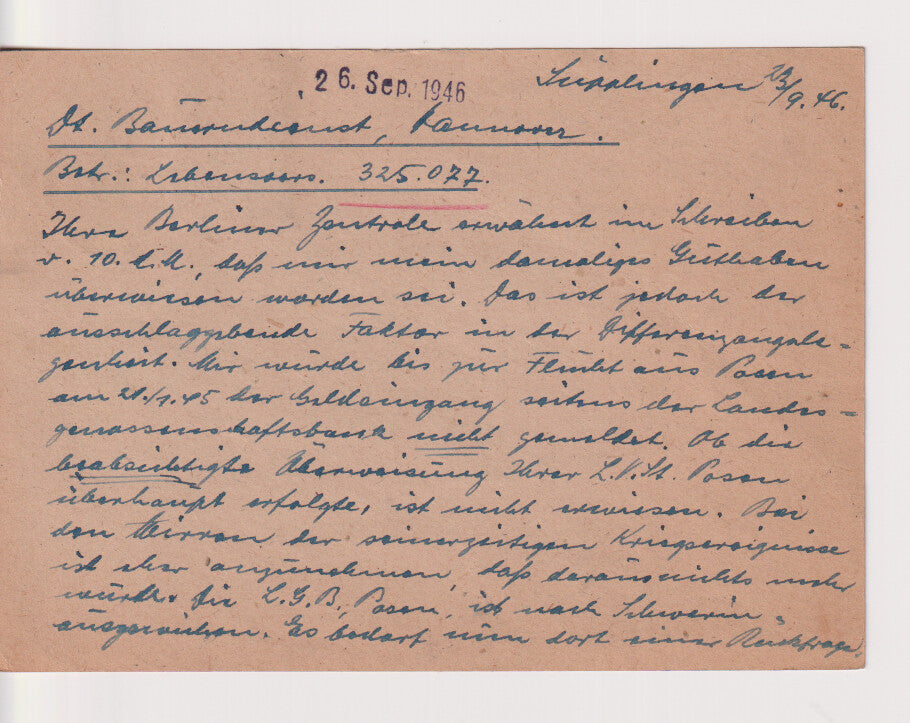 26. Sep. 1946
Süpplingen 23/9.46.
Dt. Bauerndienst, Hannover.
Betr.: Lebensvers. 325.077.
Ihre Berliner Zentrale erwähnt im Schreiben
v. 10. d.M., daß mir mein damaliges Guthaben
überwiesen worden sei. Das ist jedoch der
ausschlaggebende Faktor in der Differenzangele=
genheit. Mir wurde bis zur Flucht aus Posen
am 20./1.45 der Geldeingang seitens der Landes=
genossenschaftsbank nicht gemeldet. Ob die
beabsichtigte Überweisung Ihrer L.V.St. Posen
überhaupt erfolgte, ist nicht erwiesen. Bei
den Wirren der seinerzeitigen Kriegsereignisse
ist eher anzunehmen, daß daraus nichts mehr
wurde. Die L.G.B., Posen, ist nach Schwerin
ausgewichen. Es bedarf nun dort einer Rückfrage.